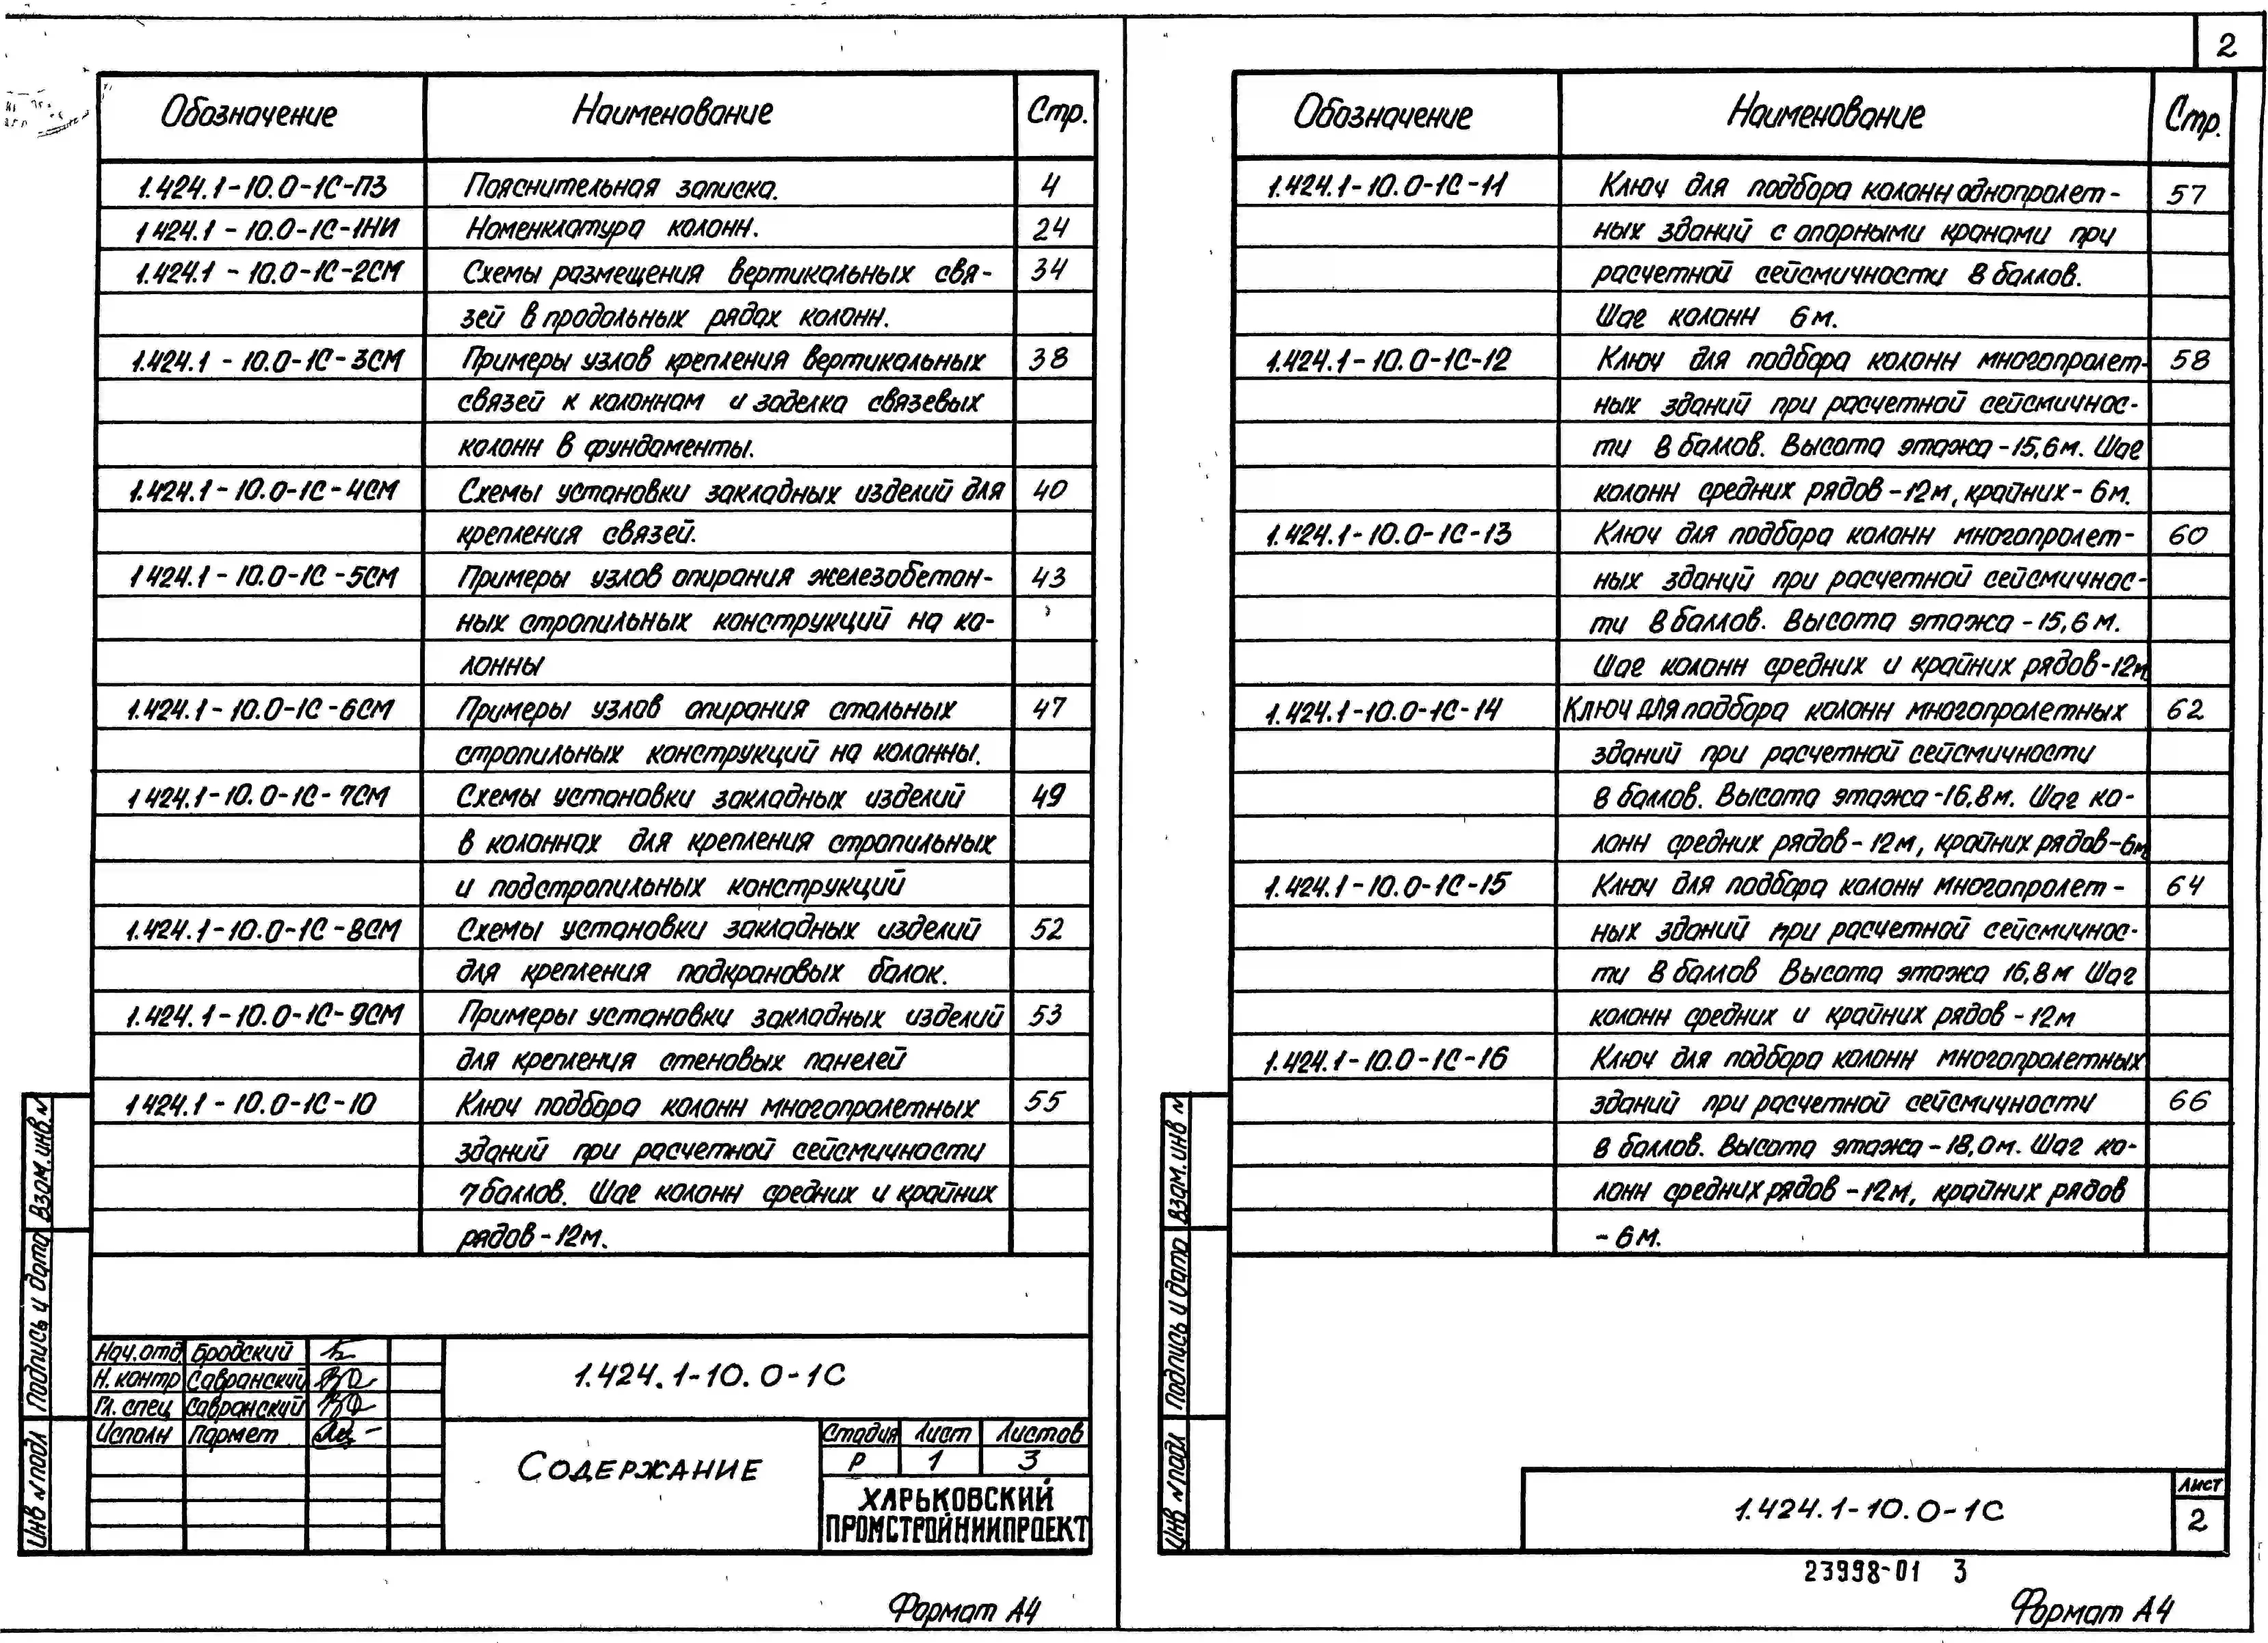 2
Обозначение Наименование Стр.
1.424.1-10.0-1С-ПЗ Пояснительная записка. 4
1 424.1 - 10.0-1С-1НИ Номенклатура колонн. 24
1.424.1 - 10.0-1С-2СМ Схемы размещения вертикальных свя- 34
зей в продольных рядах колонн.
1.424.1 - 10.0-1С-3СМ Примеры узлов крепления вертикальных 38
связей к колоннам и заделка связевых
колонн в фундаменты.
1.424.1-10.0-1С-4СМ Схемы установки закладных изделий для 40
крепления связей.
1 424.1-10.0-1С-5СМ Примеры узлов опирания железобетон- 43
ных стропильных конструкций на ко-
лонны
1.424.1-10.0-1С-6СМ Примеры узлов опирания стальных 47
стропильных конструкций на колонны.
1 424.1-10.0-1С-7СМ Схемы установки закладных изделий 49
в колоннах для крепления стропильных
и подстропильных конструкций
1.424.1-10.0-1С-8СМ Схемы установки закладных изделий 52
для крепления подкрановых балок.
1.424.1-10.0-1С-9СМ Примеры установки закладных изделий 53
для крепления стеновых панелей
1 424.1-10.0-1С-10 Ключ подбора колонн многопролетных 55
зданий при расчетной сейсмичности
7 баллов. Шаг колонн средних и крайних
рядов-12м.
Взам.инв.№
Подпись и дата
Инв № подл
Нач.отд. Бродский
Н. контр Савранский
Гл. спец Савранский
Исполн Пармет
1.424.1-10.0-1С
Содержание
Стадия Лист Листов
Р 1 3
ХАРЬКОВСКИЙ
ПРОМСТРОЙНИИПРОЕКТ
Формат А4
Обозначение Наименование Стр.
1.424.1-10.0-1С-11 Ключ для подбора колонн однопролет- 57
ных зданий с опорными кранами при
расчетной сейсмичности 8 баллов.
Шаг колонн 6м.
1.424.1-10.0-1С-12 Ключ для подбора колонн многопролет- 58
ных зданий при расчетной сейсмичнос-
ти 8 баллов. Высота этажа-15,6м. Шаг
колонн средних рядов-12м, крайних-6м.
1.424.1-10.0-1С-13 Ключ для подбора колонн многопролет- 60
ных зданий при расчетной сейсмичнос-
ти 8 баллов. Высота этажа-15,6м.
Шаг колонн средних и крайних рядов-12м
1.424.1-10.0-1С-14 Ключ для подбора колонн многопролетных 62
зданий при расчетной сейсмичности
8 баллов. Высота этажа-16,8м. Шаг ко-
лонн средних рядов-12м, крайних рядов-6м
1.424.1-10.0-1С-15 Ключ для подбора колонн многопролет- 64
ных зданий при расчетной сейсмичнос-
ти 8 баллов Высота этажа 16,8м Шаг
колонн средних и крайних рядов-12м
1.424.1-10.0-1С-16 Ключ для подбора колонн многопролетных
зданий при расчетной сейсмичности 66
8 баллов. Высота этажа-18,0м. Шаг ко-
лонн средних рядов-12м, крайних рядов
-6м.
Взам.инв №
Подпись и дата
Инв № подл
1.424.1-10.0-1С
Лист
2
23998-01 3
Формат А4